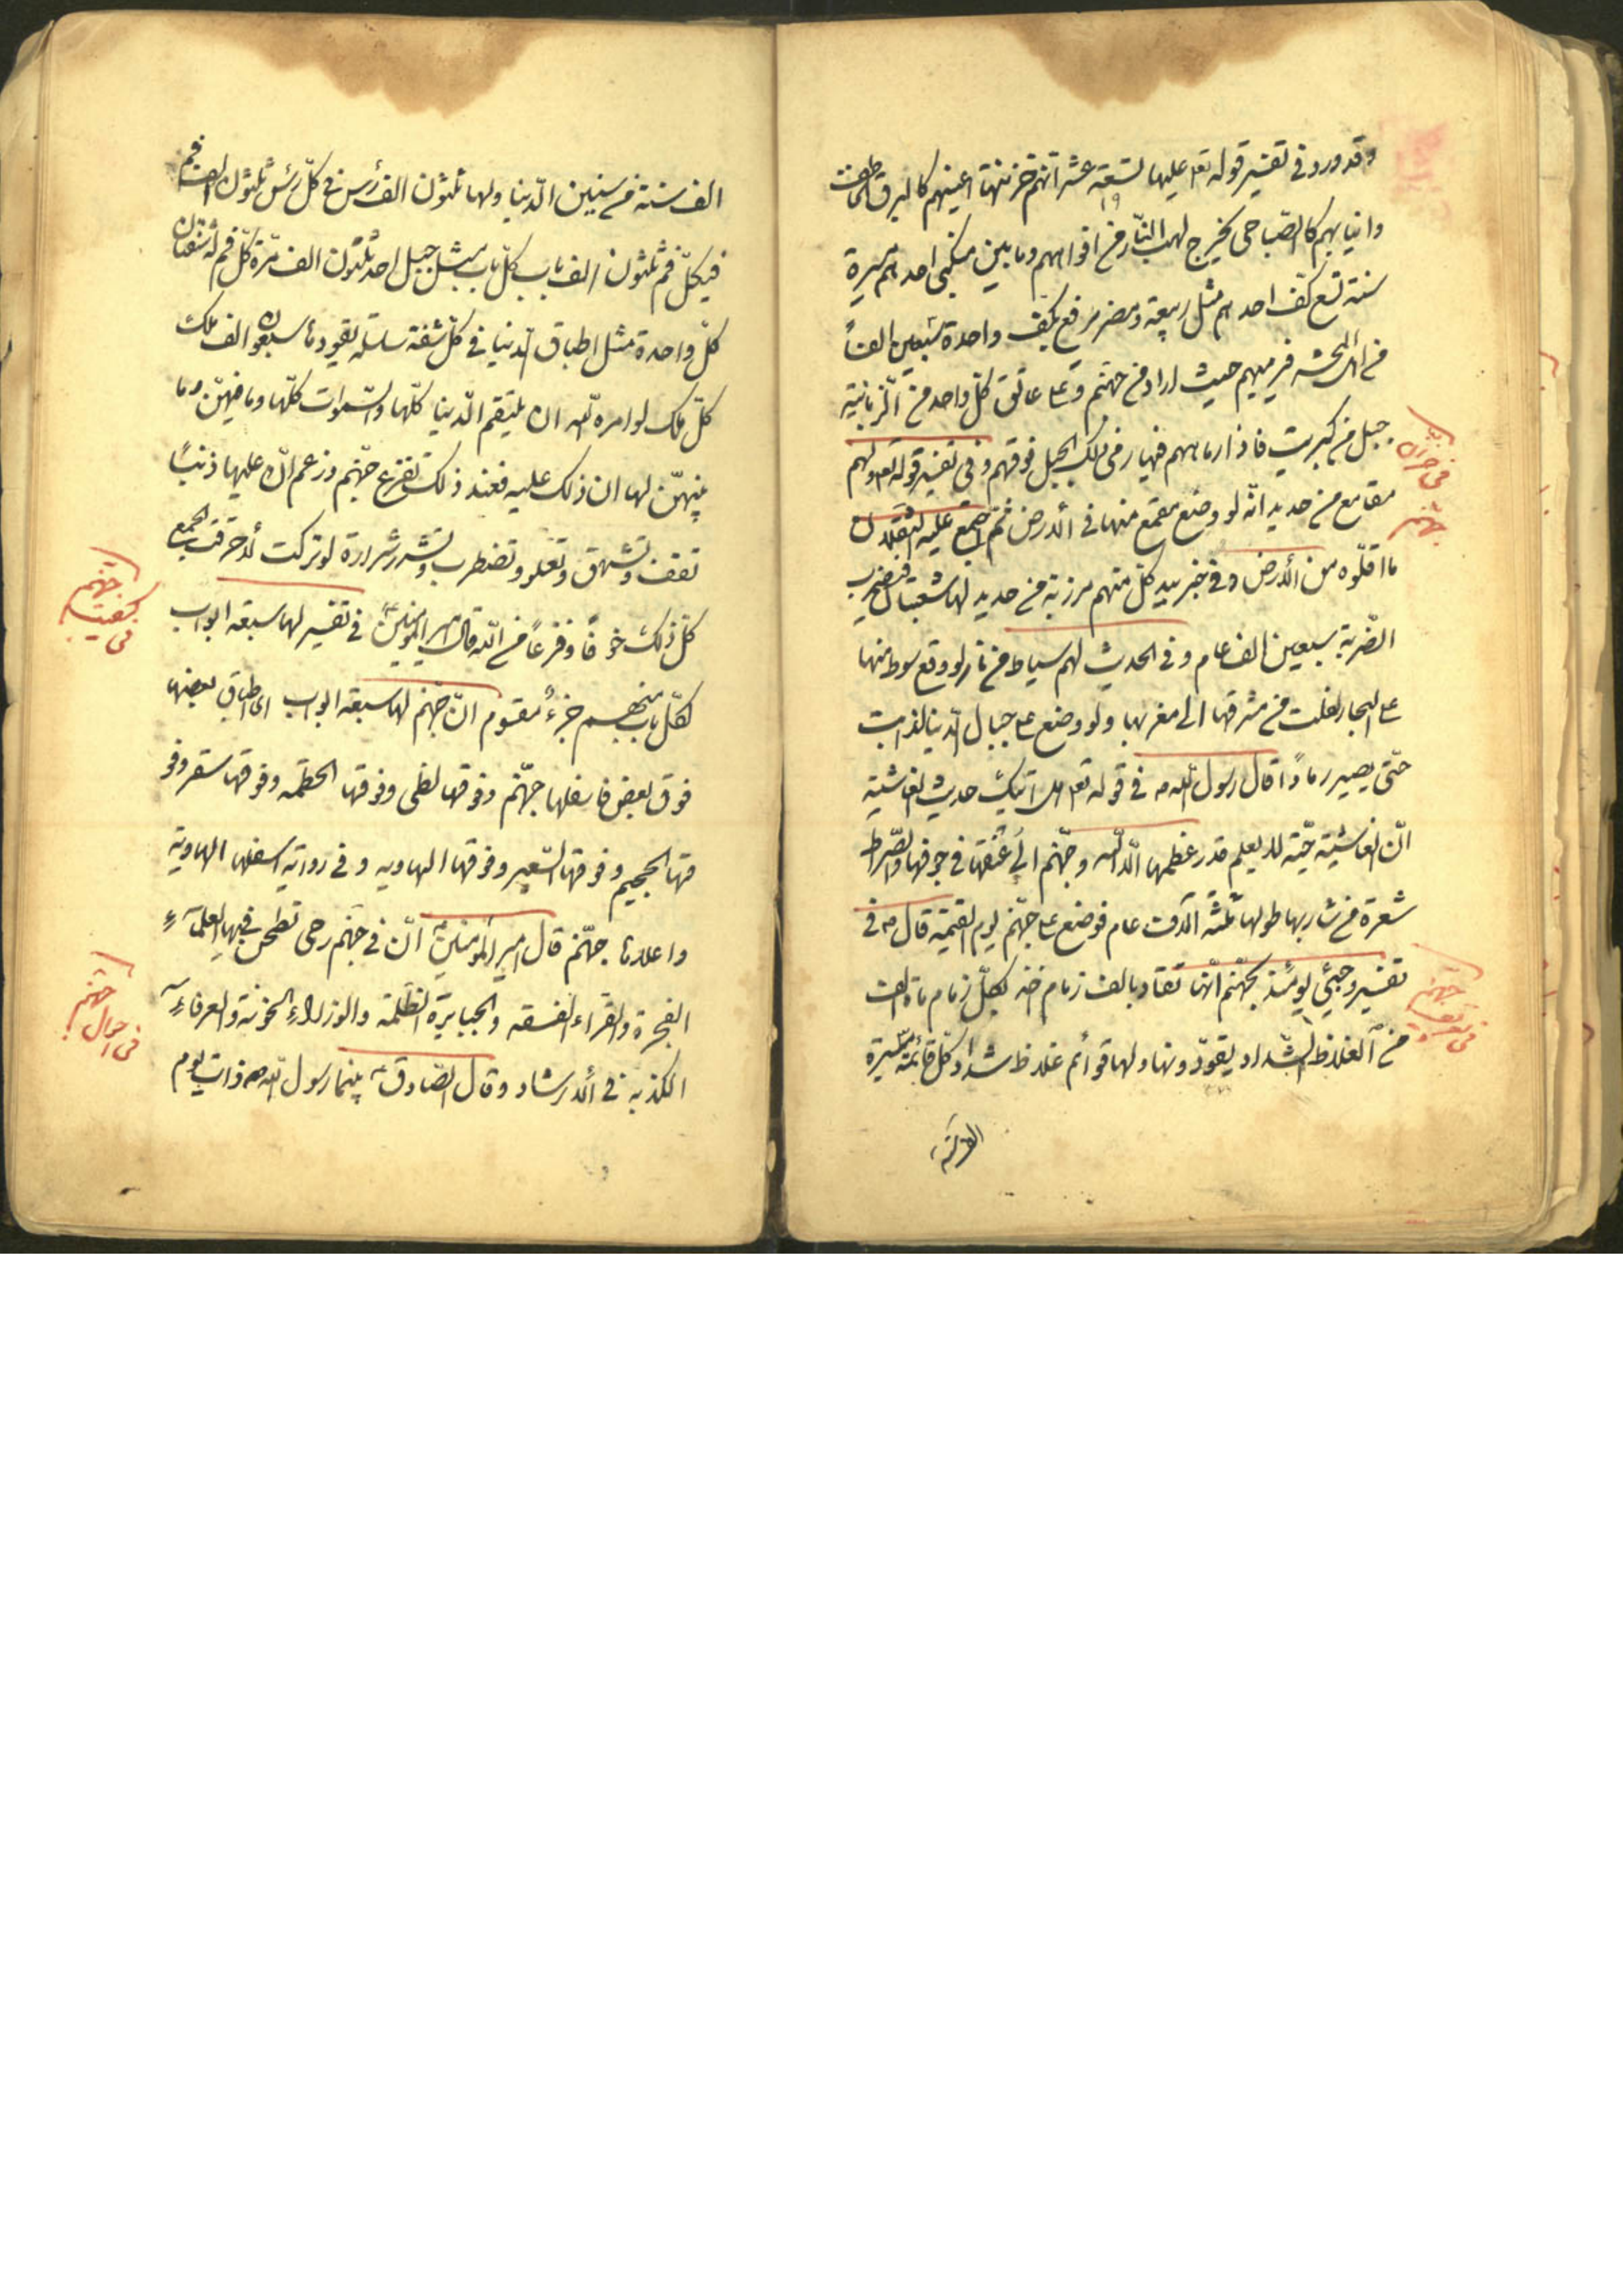 وقد ورد فی تفسیر قوله تعا علیها تسعة عشر انهم خزنتها اعینهم کالبرق الخاطف
وانیابهم کالصّیاصی یخرج لهب النّار من افواههم وما بین منکبی احدهم مسیرة
سنة تسع کفّ احدهم مثل ربیعة ومضر یرفع بکفّ واحدة سبعین الفاً
فیرمیهم حیث اراد من جهنّم وعلی عاتق کلّ واحد من الزّبانیة
جبل من کبریت فاذا رماهم فیها رمی ذلک الجبل فوقهم وفی تفسیر قوله تعا ولهم
مقامع من حدید انّه لو وضع مقمع منها فی الارض ثمّ اجتمع علیه الثقلان
ما اقلّوه من الارض وفی خبر بید کلّ منهم مرزبة من حدید لها شعبتان فیضرب
الضّربة سبعین الف عام وفی الحدیث لهم سیاط من نار لو وقع سوط منها
علی البحار لغلت من مشرقها الی مغربها ولو وضع علی جبال الدنیا لذابت
حتّی یصیر رماداً قال رسول الله ص فی قوله تعا هل اتیک حدیث الغاشیة
انّ الغاشیة حیّة لا یعلم قدر عظمها الّا الله وجهنّم الی عنقها فی جوفها والصّراط
شعرة من شاربها طولها ثلثة آلاف عام فوضع علی جهنّم یوم القیمة قال ص فی
تفسیر وجیئ یومئذ بجهنّم انّها تقاد بالف زمام اخذ بکلّ زمام مأة الف
من الغلاظ الشّداد یقوّدونها ولها قوائم غلاظ شداد کلّ قائمة مسیرة
فی خزنة
جهنّم
فی تعریف
جهنّم
الف سنة من سنین الدّنیا ولها ثلثون الف رأس فی کلّ رئس ثلثون الف فم
فیکلّ فم ثلثون الف ناب کلّ ناب مثل جبل احد ثلثون الف مرّة کلّ فم له شفتان
کلّ واحدة مثل اطباق الدنیا فی کلّ شفة سلسلة یقودها سبعون الف ملک
کلّ ملک لو امره الله ان یلتقم الدّنیا کلّها والسّموات کلّها وما فیهنّ وما
بینهنّ لهان ذلک علیه فعند ذلک تفزع جهنّم وزعم الله علیها ذنباً
تقف وتشهق وتعلو وتضطرب وتشرر شرارة لو ترکت لأحرقت الجمع
کلّ ذلک خوفاً وفزعاً من الله قال امیر المؤمنین ع فی تفسیر لها سبعة ابواب
لکلّ باب منهم جزء مقسوم انّ جهنّم لها سبعة ابواب ای اطباق بعضها
فوق بعض فاسفلها جهنّم وفوقها لظی وفوقها الحطمه وفوقها سقر وفو
قها الجحیم وفوقها السّعیر وفوقها الهاویه وفی روایة اسفلها الهاویة
واعلاها جهنّم قال امیر المؤمنین ع انّ فی جهنّم رحی تطحن فیها العلمآء
الفجرة والقراء الفسقه والجبابرة الظلمة والوزراء الخونة والعرفاء
الکذبه فی الارشاد وقال الصّادق ع بینما رسول الله ص ذات یوم
فی کیفیت
جهنّم
فی احوال
جهنّم